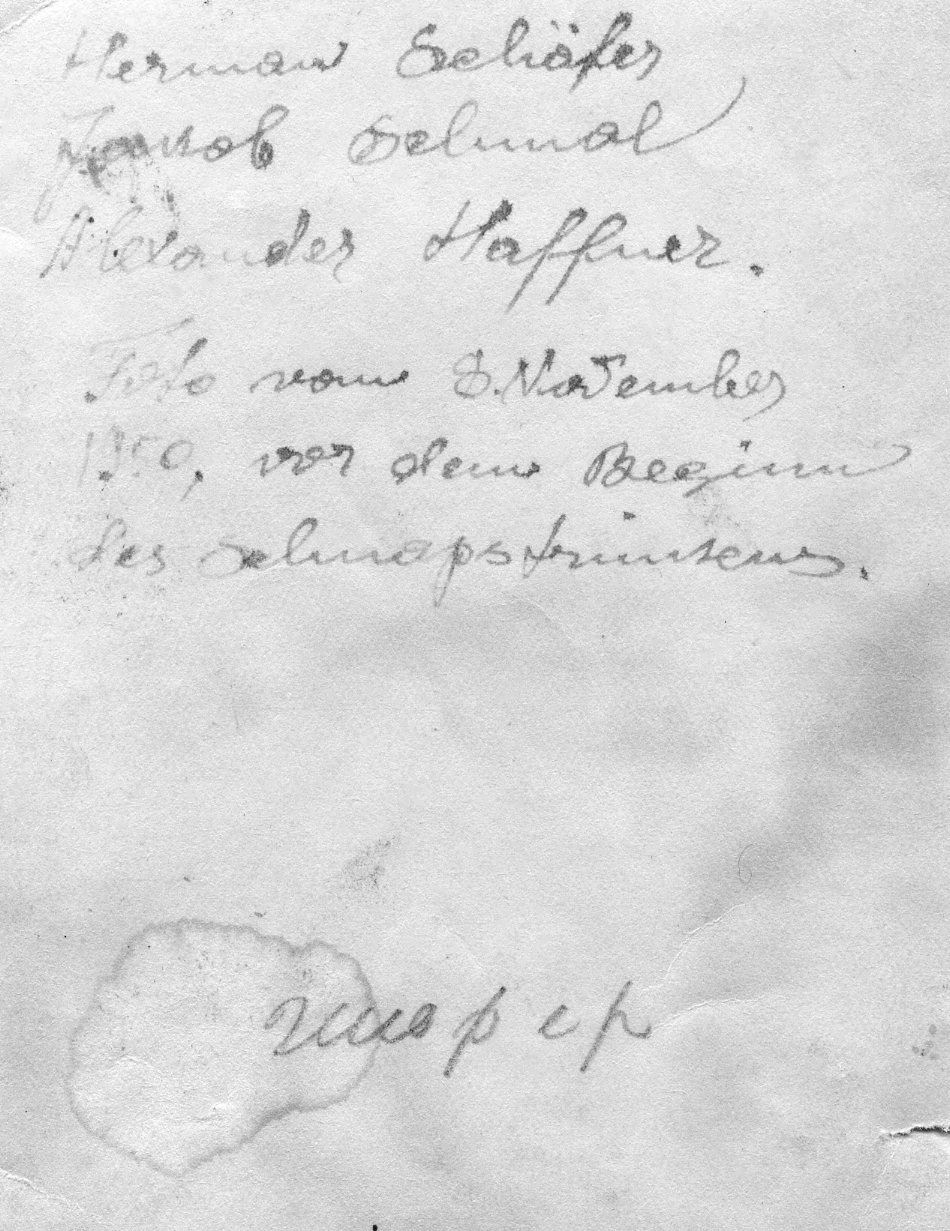 Herman Schäfer
Jakob Schmal
Alexander Haffner.
Foto vom 8. November
1950, vor dem Beginn
des Schnapstrinkens.